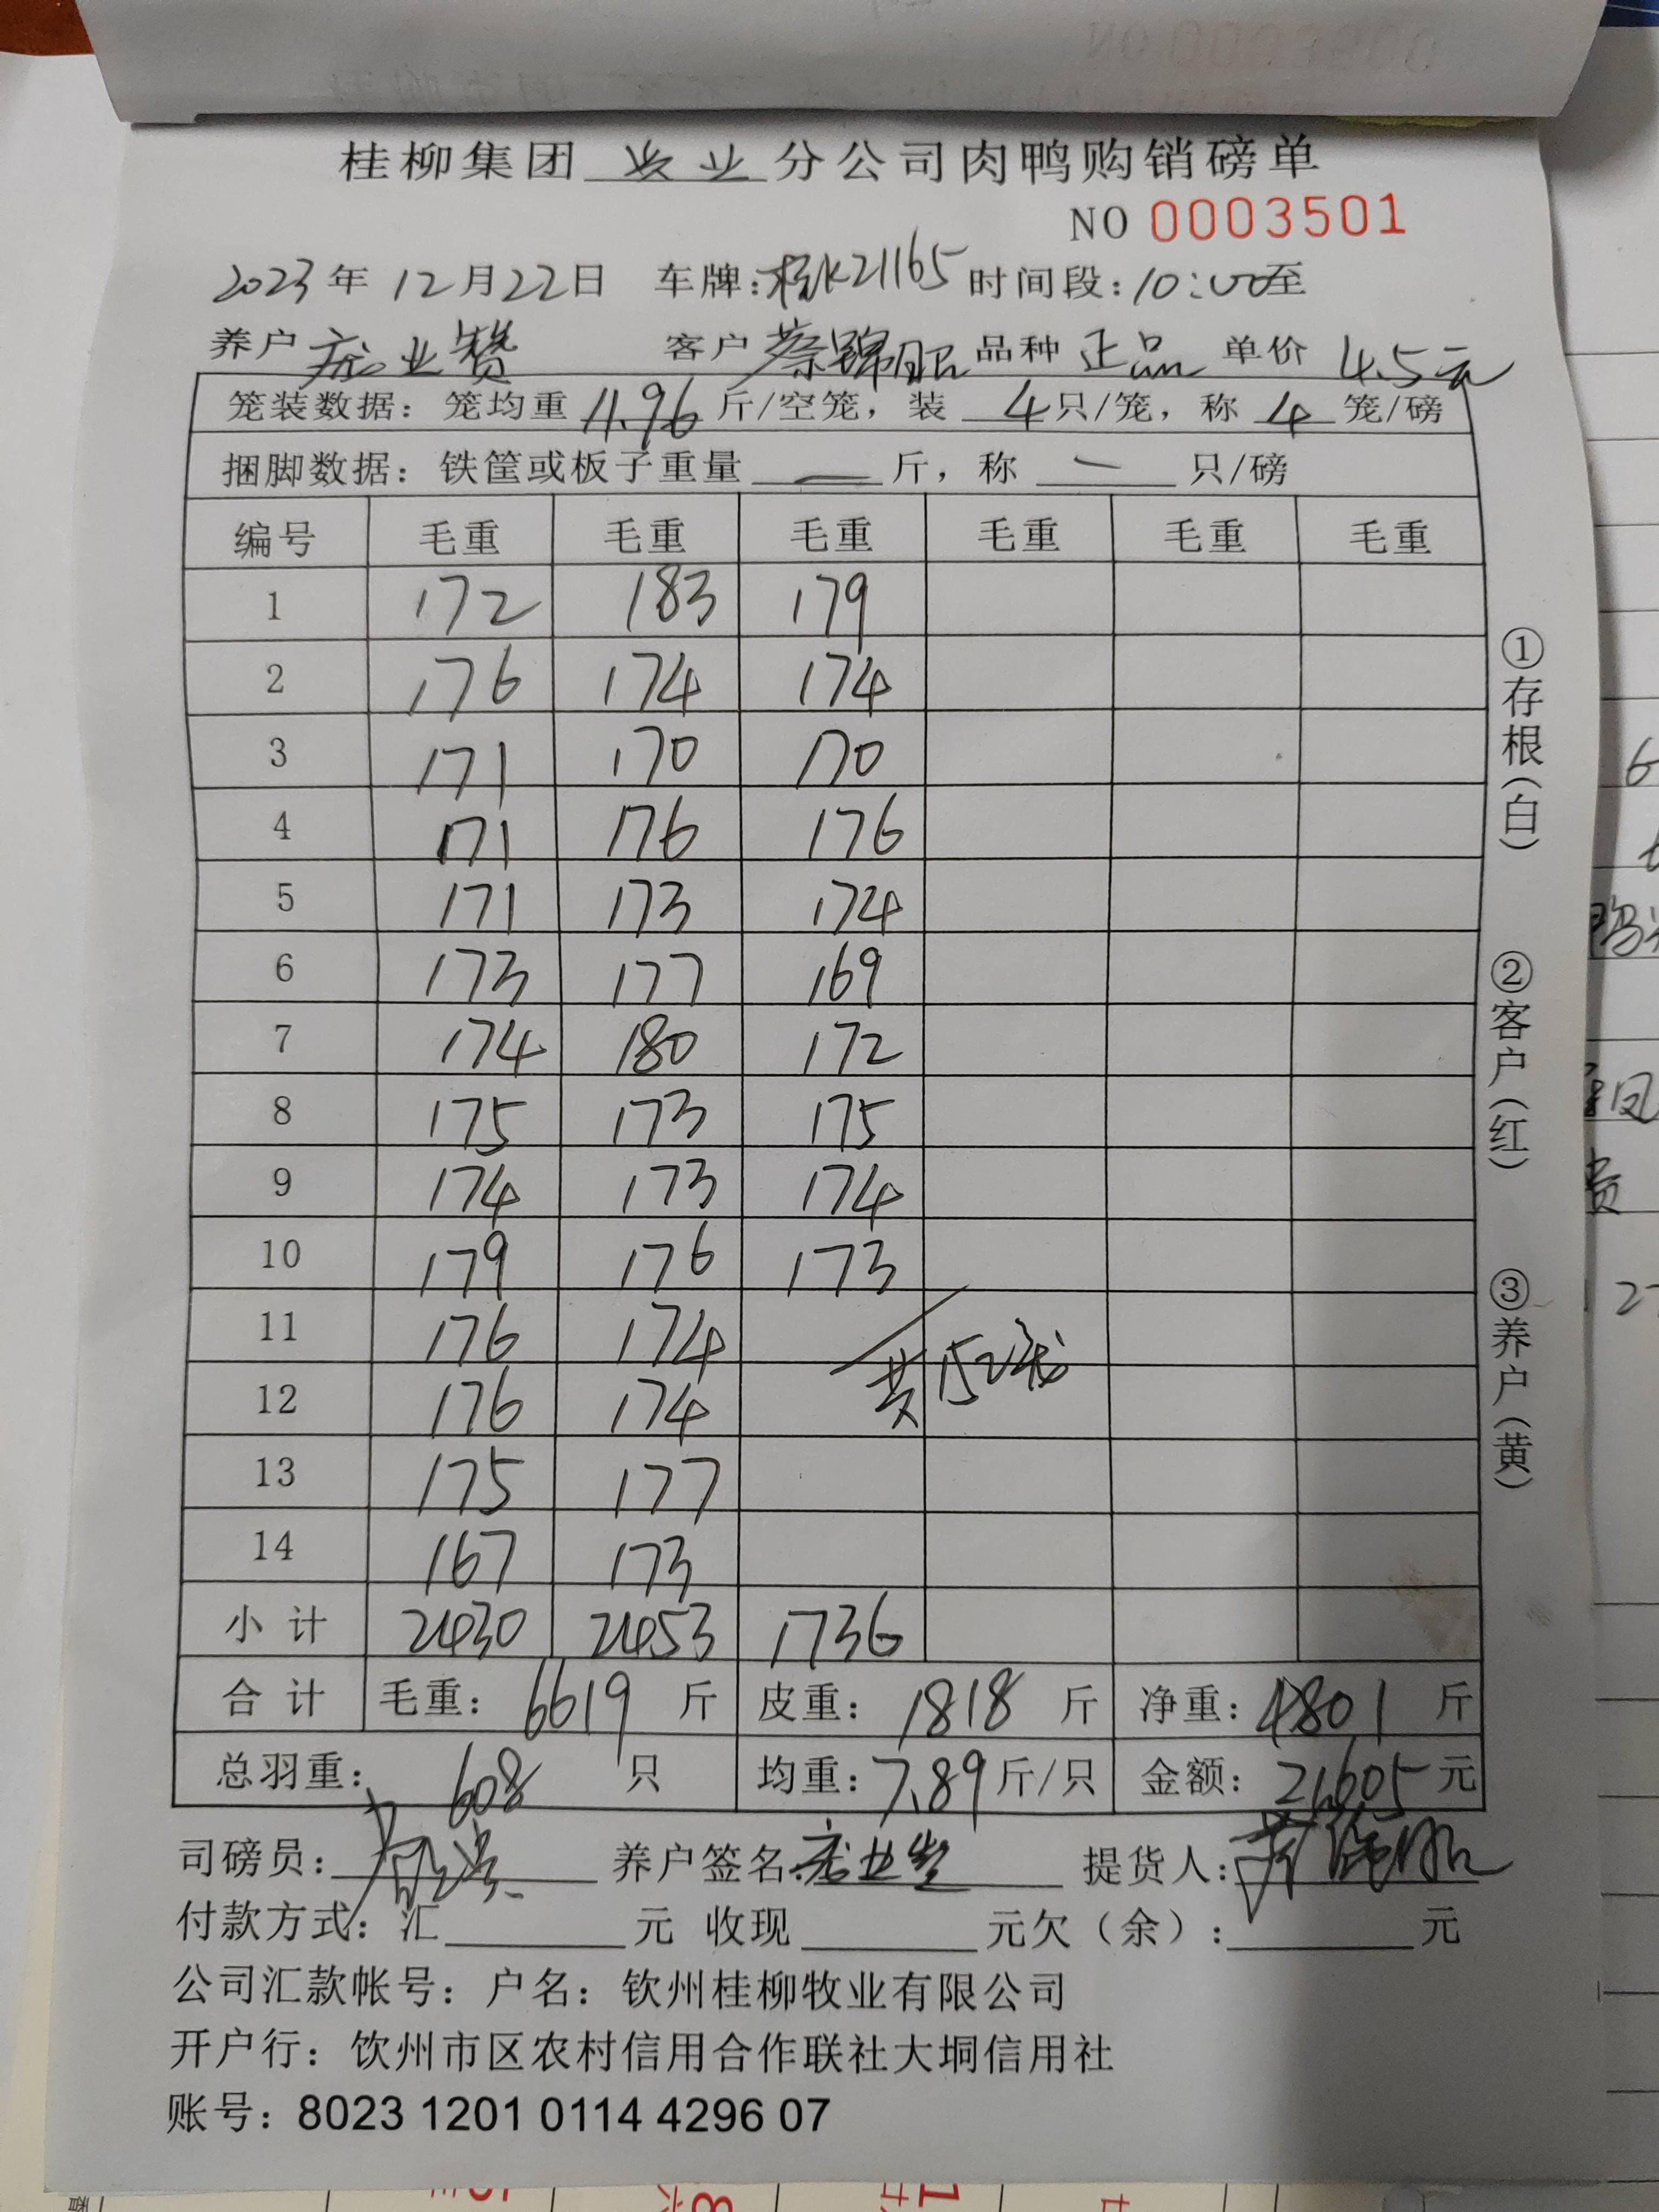 桂柳集团 农业 分公司肉鸭购销磅单
NO 0003501
2023年 12月22日 车牌:桂K21165 时间段:10:00至
养户 庞业赞 客户 蔡锦昭 品种 正品 单价 4.5元
笼装数据: 笼均重 11.96 斤/空笼, 装 4只/笼, 称 4 笼/磅
捆脚数据: 铁筐或板子重量 — 斤, 称 — 只/磅
编号 毛重 毛重 毛重 毛重 毛重 毛重
1 172 183 179
2 176 174 174
3 171 170 170
4 171 176 176
5 171 173 174
6 173 177 169
7 174 180 172
8 175 173 175
9 174 173 174
10 179 176 173
11 176 174
12 176 174 共152笼
13 175 177
14 167 173
小计 2430 2453 1736
合计 毛重: 6619 斤 皮重: 1818 斤 净重: 4801 斤
总羽重: 608 只 均重: 7.89 斤/只 金额: 21605 元
司磅员: 养户签名: 庞业赞 提货人: 蔡锦昭
付款方式: 汇 元 收现 元欠(余): 元
公司汇款帐号: 户名: 钦州桂柳牧业有限公司
开户行: 钦州市区农村信用合作联社大垌信用社
账号: 8023 1201 0114 4296 07
①存根(白)
②客户(红)
③养户(黄)